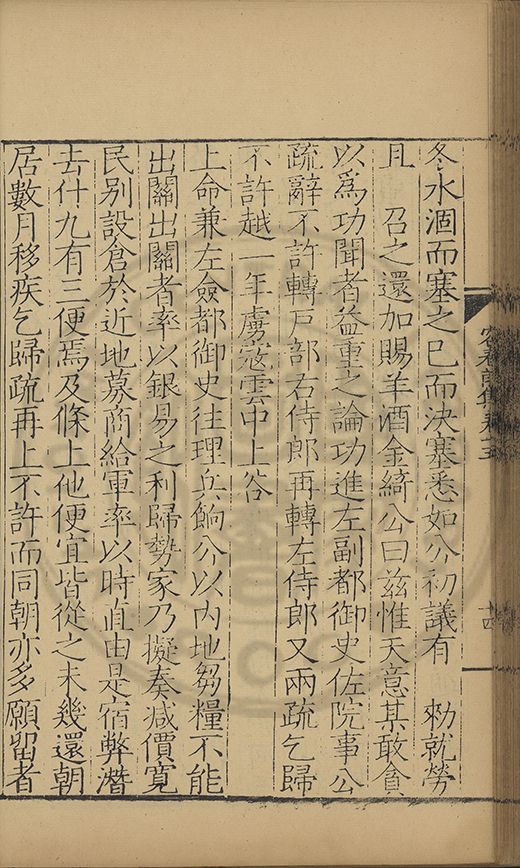 冬水涸而塞之已而決塞悉如公初議有　勑就勞
且　召之還加賜羊酒金綺公曰兹惟天意某敢貪
以爲功聞者益重之論功進左副都御史佐院事公
疏辭不許轉户部右侍郎再轉左侍郎又兩疏乞歸
不許越一年虜寇雲中上谷
上命兼左僉都御史往理兵餉公以内地芻糧不能
出關出關者率以銀易之利歸勢家乃擬奏减價寬
民别設倉於近地募商給軍率以時直由是宿弊潛
去什九有三便焉及條上他便宜皆從之未幾還朝
居數月移疾乞歸疏再上不許而同朝亦多願留者
十四